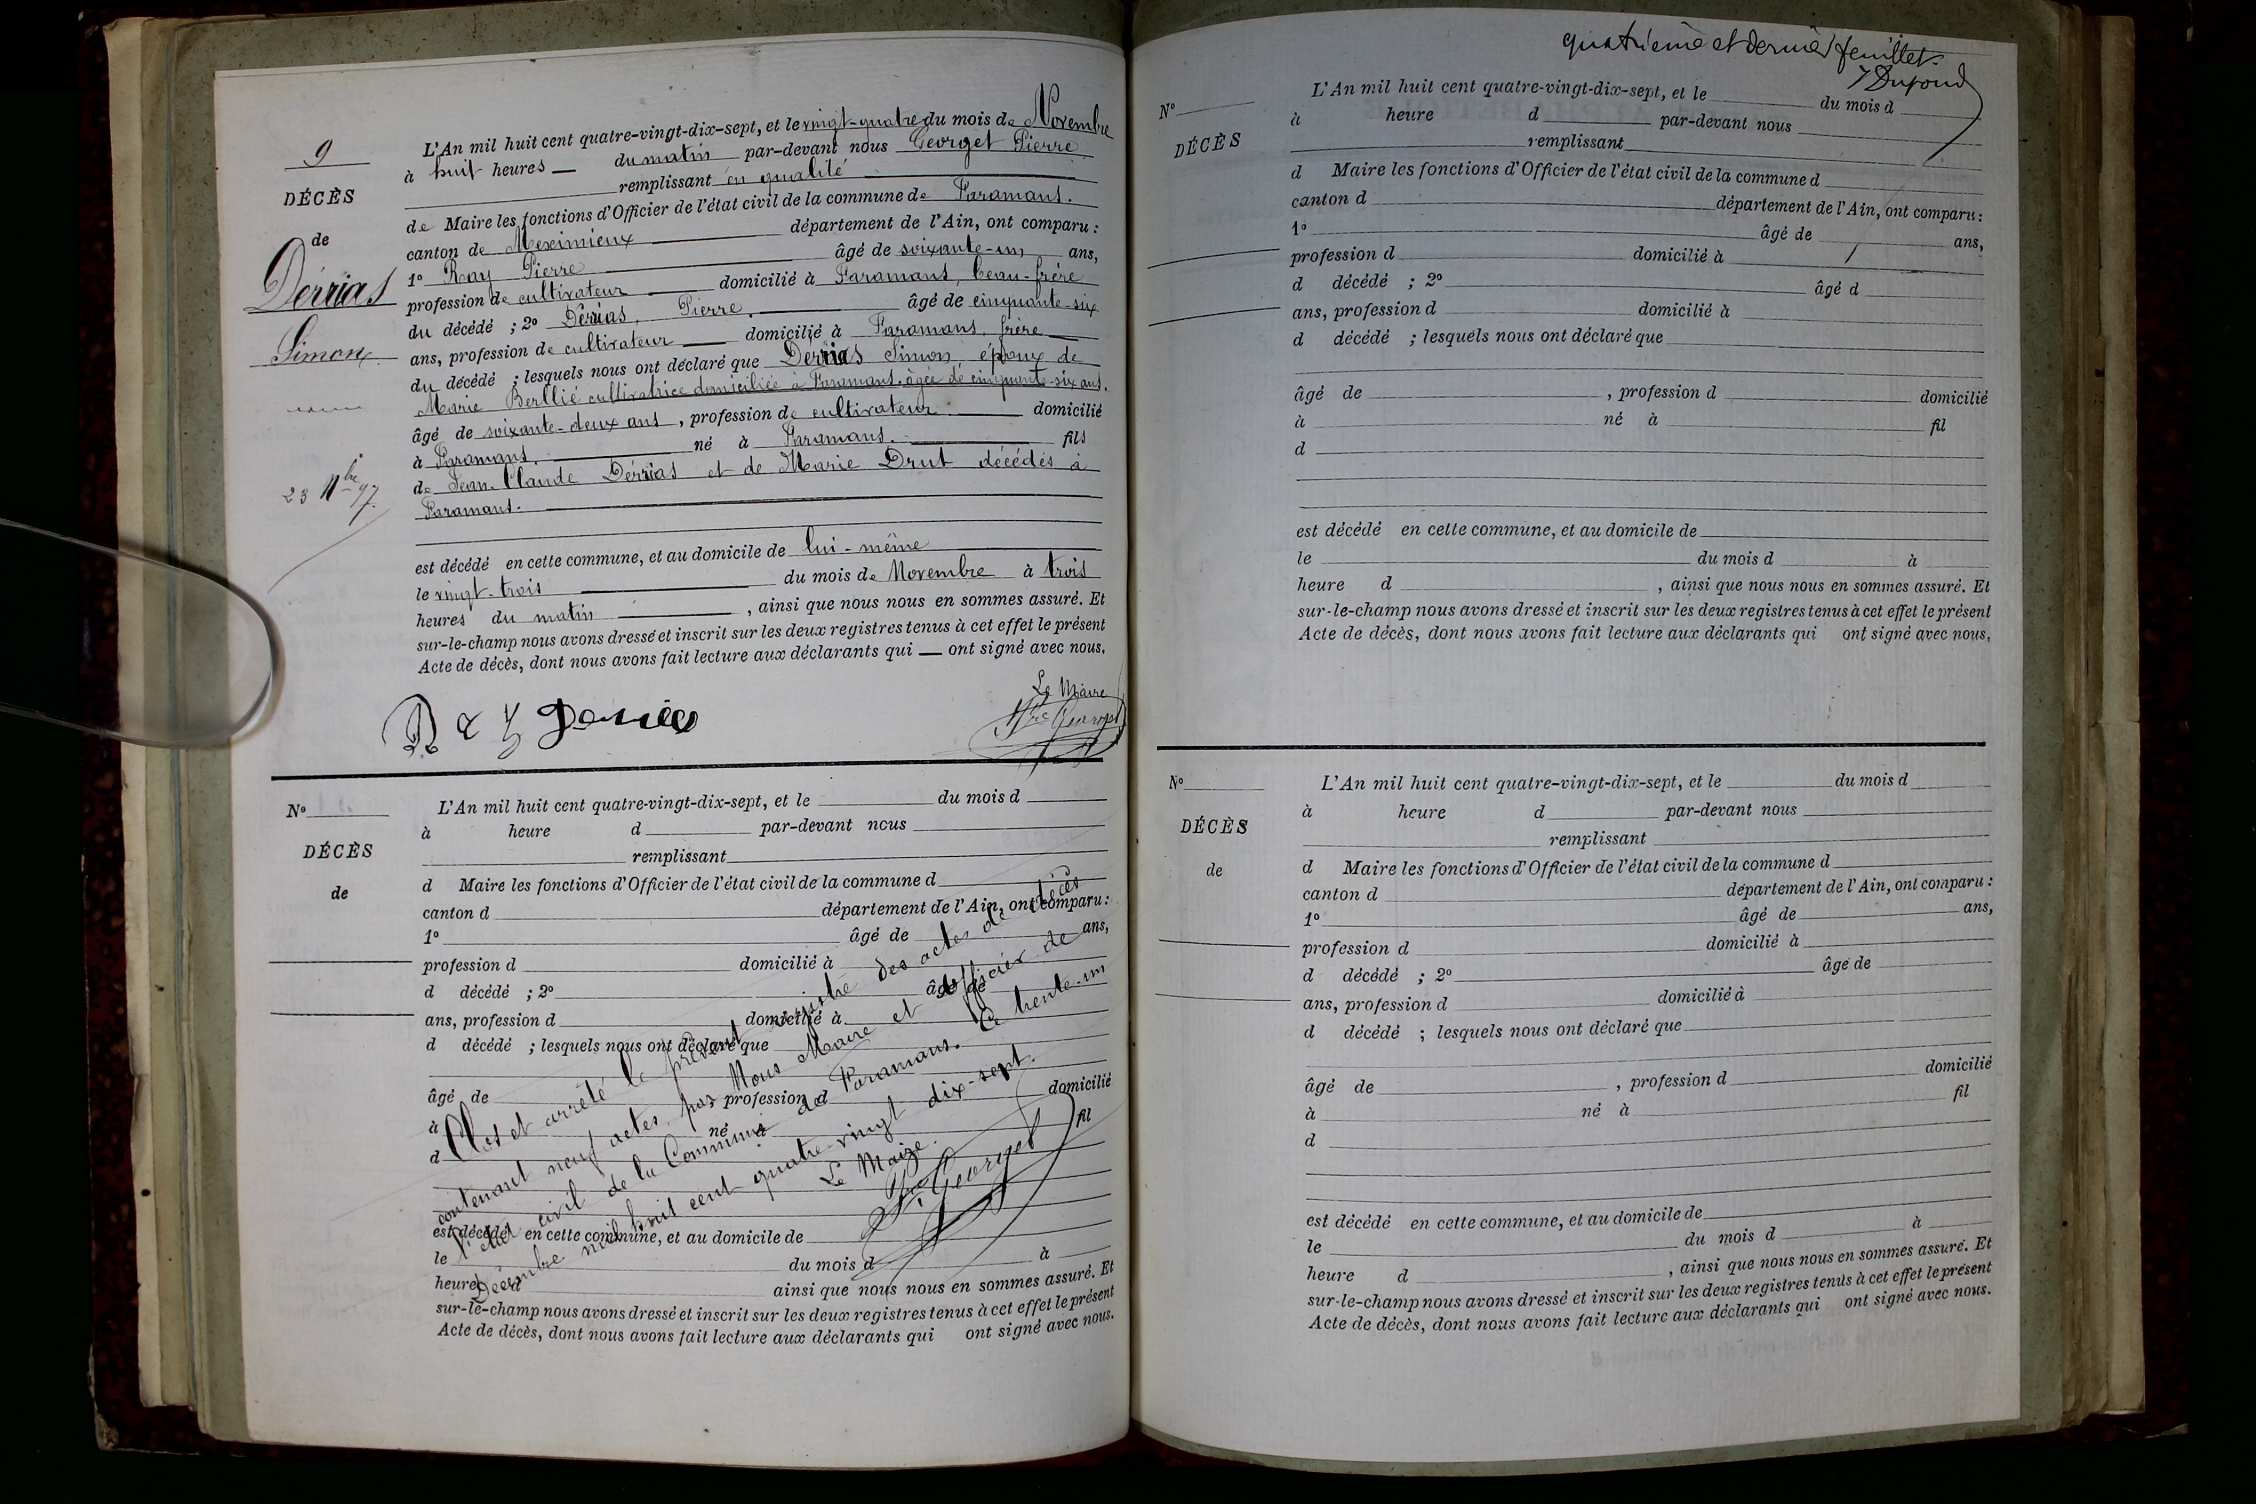 9
DÉCÈS
de
Dérrias
Simon
23 9bre 97.
L'An mil huit cent quatre-vingt-dix-sept, et le vingt-quatre du mois de Novembre
à huit heures du matin par-devant nous Georget Pierre
remplissant en qualité
de Maire les fonctions d'Officier de l'état civil de la commune de Faramans.
canton de Meximieux département de l'Ain, ont comparu :
1º Ray Pierre âgé de soixante-un ans,
profession de cultivateur domicilié à Faramans, beau-frère
du décédé ; 2º Dérrias, Pierre, âgé de cinquante-six
ans, profession de cultivateur domicilié à Faramans, frère
du décédé ; lesquels nous ont déclaré que Derrias Simon, époux de
Marie Berllié cultivatrice domiciliée à Faramans, âgée de cinquante-six ans.
âgé de soixante-deux ans, profession de cultivateur domicilié
à Faramans. né à Faramans. fils
de Jean-Claude Dérrias et de Marie Drut décédés à
Faramans.
est décédé en cette commune, et au domicile de lui-même
le vingt-trois du mois de Novembre à trois
heures du matin, ainsi que nous nous en sommes assuré. Et
sur-le-champ nous avons dressé et inscrit sur les deux registres tenus à cet effet le présent
Acte de décès, dont nous avons fait lecture aux déclarants qui — ont signé avec nous.
Le Maire
Ray
Pre Georget
Nº
DÉCÈS
de
L'An mil huit cent quatre-vingt-dix-sept, et le du mois d
à heure d par-devant nous
remplissant
d Maire les fonctions d'Officier de l'état civil de la commune d
canton d département de l'Ain, ont comparu :
1º âgé de ans,
profession d domicilié à
d décédé ; 2º âgé de
ans, profession d domicilié à
d décédé ; lesquels nous ont déclaré que
âgé de , profession d domicilié
à né à fil
d
est décédé en cette commune, et au domicile de
le du mois d à
heure d ainsi que nous nous en sommes assuré. Et
sur-le-champ nous avons dressé et inscrit sur les deux registres tenus à cet effet le présent
Acte de décès, dont nous avons fait lecture aux déclarants qui ont signé avec nous.
Clos et arrêté le présent registre des actes de décès
contenant neuf actes, par Nous Maire et officier de
l'état civil de la Commune de Faramans. Ce trente-un
Décembre mil huit cent quatre-vingt dix-sept.
Le Maire.
Pre Georget
quatrième et dernier feuillet.
Dupond
Nº
DÉCÈS
L'An mil huit cent quatre-vingt-dix-sept, et le du mois d
à heure d par-devant nous
remplissant
d Maire les fonctions d'Officier de l'état civil de la commune d
canton d département de l'Ain, ont comparu :
1º âgé de ans,
profession d domicilié à
d décédé ; 2º âgé d
ans, profession d domicilié à
d décédé ; lesquels nous ont déclaré que
âgé de , profession d domicilié
à né à fil
d
est décédé en cette commune, et au domicile de
le du mois d à
heure d , ainsi que nous nous en sommes assuré. Et
sur-le-champ nous avons dressé et inscrit sur les deux registres tenus à cet effet le présent
Acte de décès, dont nous avons fait lecture aux déclarants qui ont signé avec nous.
Nº
DÉCÈS
de
L'An mil huit cent quatre-vingt-dix-sept, et le du mois d
à heure d par-devant nous
remplissant
d Maire les fonctions d'Officier de l'état civil de la commune d
canton d département de l'Ain, ont comparu :
1º âgé de ans,
profession d domicilié à
d décédé ; 2º âgé de
ans, profession d domicilié à
d décédé ; lesquels nous ont déclaré que
âgé de , profession d domicilié
à né à fil
d
est décédé en cette commune, et au domicile de
le du mois d à
heure d , ainsi que nous nous en sommes assuré. Et
sur-le-champ nous avons dressé et inscrit sur les deux registres tenus à cet effet le présent
Acte de décès, dont nous avons fait lecture aux déclarants qui ont signé avec nous.